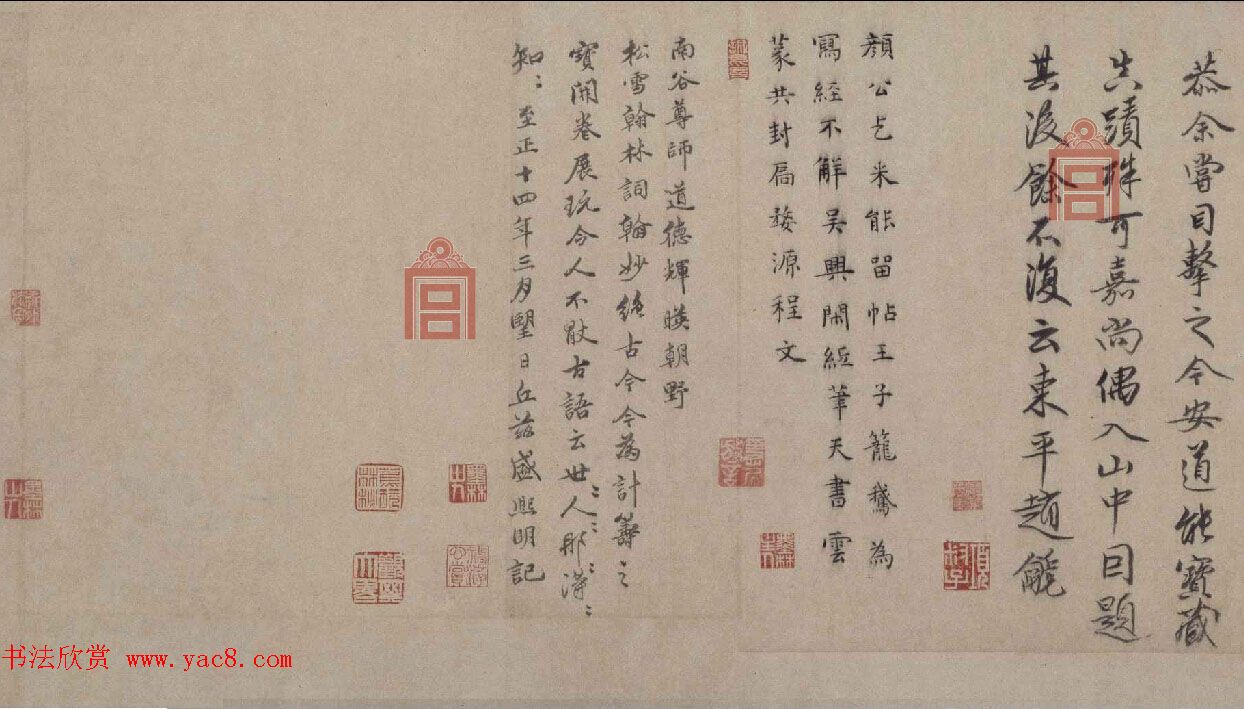 恭余嘗目擊之今安道能寶藏
真蹟殊可嘉尚偶入山中因題
其後餘不復云東平趙
顏公乞米能留帖王子籠鵝為
寫經不解吳興閑縱筆天書雲
篆共封扃婺源程文
南谷尊師道德輝暎朝野
松雪翰林詞翰妙絶古今今為計籌之
寶開卷展玩令人不厭古語云世〻人〻那〻得〻
知〻至正十四年三月朢日丘茲盛熙明記
書法欣赏 www.yac8.com